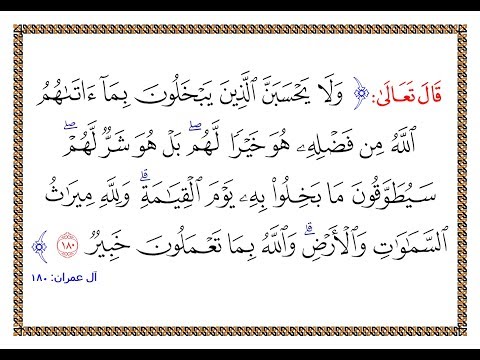 قَالَ تَعَالَىٰ: ﴿ وَلَا يَحْسَبَنَّ ٱلَّذِينَ يَبْخَلُونَ بِمَآ ءَاتَىٰهُمُ
ٱللَّهُ مِن فَضْلِهِۦ هُوَ خَيْرًا لَّهُمۖ بَلْ هُوَ شَرٌّ لَّهُمْۖ
سَيُطَوَّقُونَ مَا بَخِلُوا۟ بِهِۦ يَوْمَ ٱلْقِيَـٰمَةِۗ وَلِلَّهِ مِيرَٰثُ
ٱلسَّمَـٰوَٰتِ وَٱلْأَرْضِۗ وَٱللَّهُ بِمَا تَعْمَلُونَ خَبِيرٌ ١٨٠ ﴾
آل عمران: ١٨٠